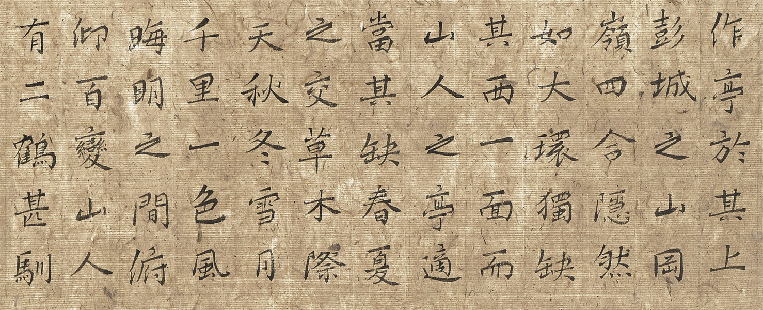 作亭於其上
彭城之山岡
嶺四合隱然
如大環獨缺
其西一面而
山人之亭適
當其缺春夏
之交草木際
天秋冬雪月
千里一色風
晦明之間俯
仰百變山人
有二鶴甚馴